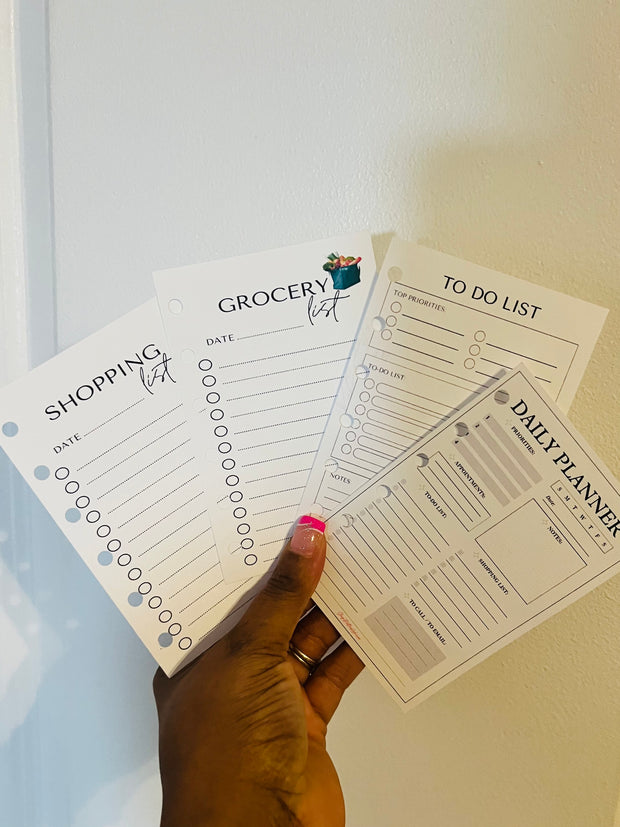 SHOPPING
list
DATE
GROCERY
list
DATE
TO DO LIST
TOP PRIORITIES:
TO-DO LIST:
NOTES
DAILY PLANNER
S M T W T F S
Date:
PRIORITIES:
APPOINTMENTS:
NOTES:
TO-DO LIST:
SHOPPING LIST:
TO CALL / TO EMAIL: